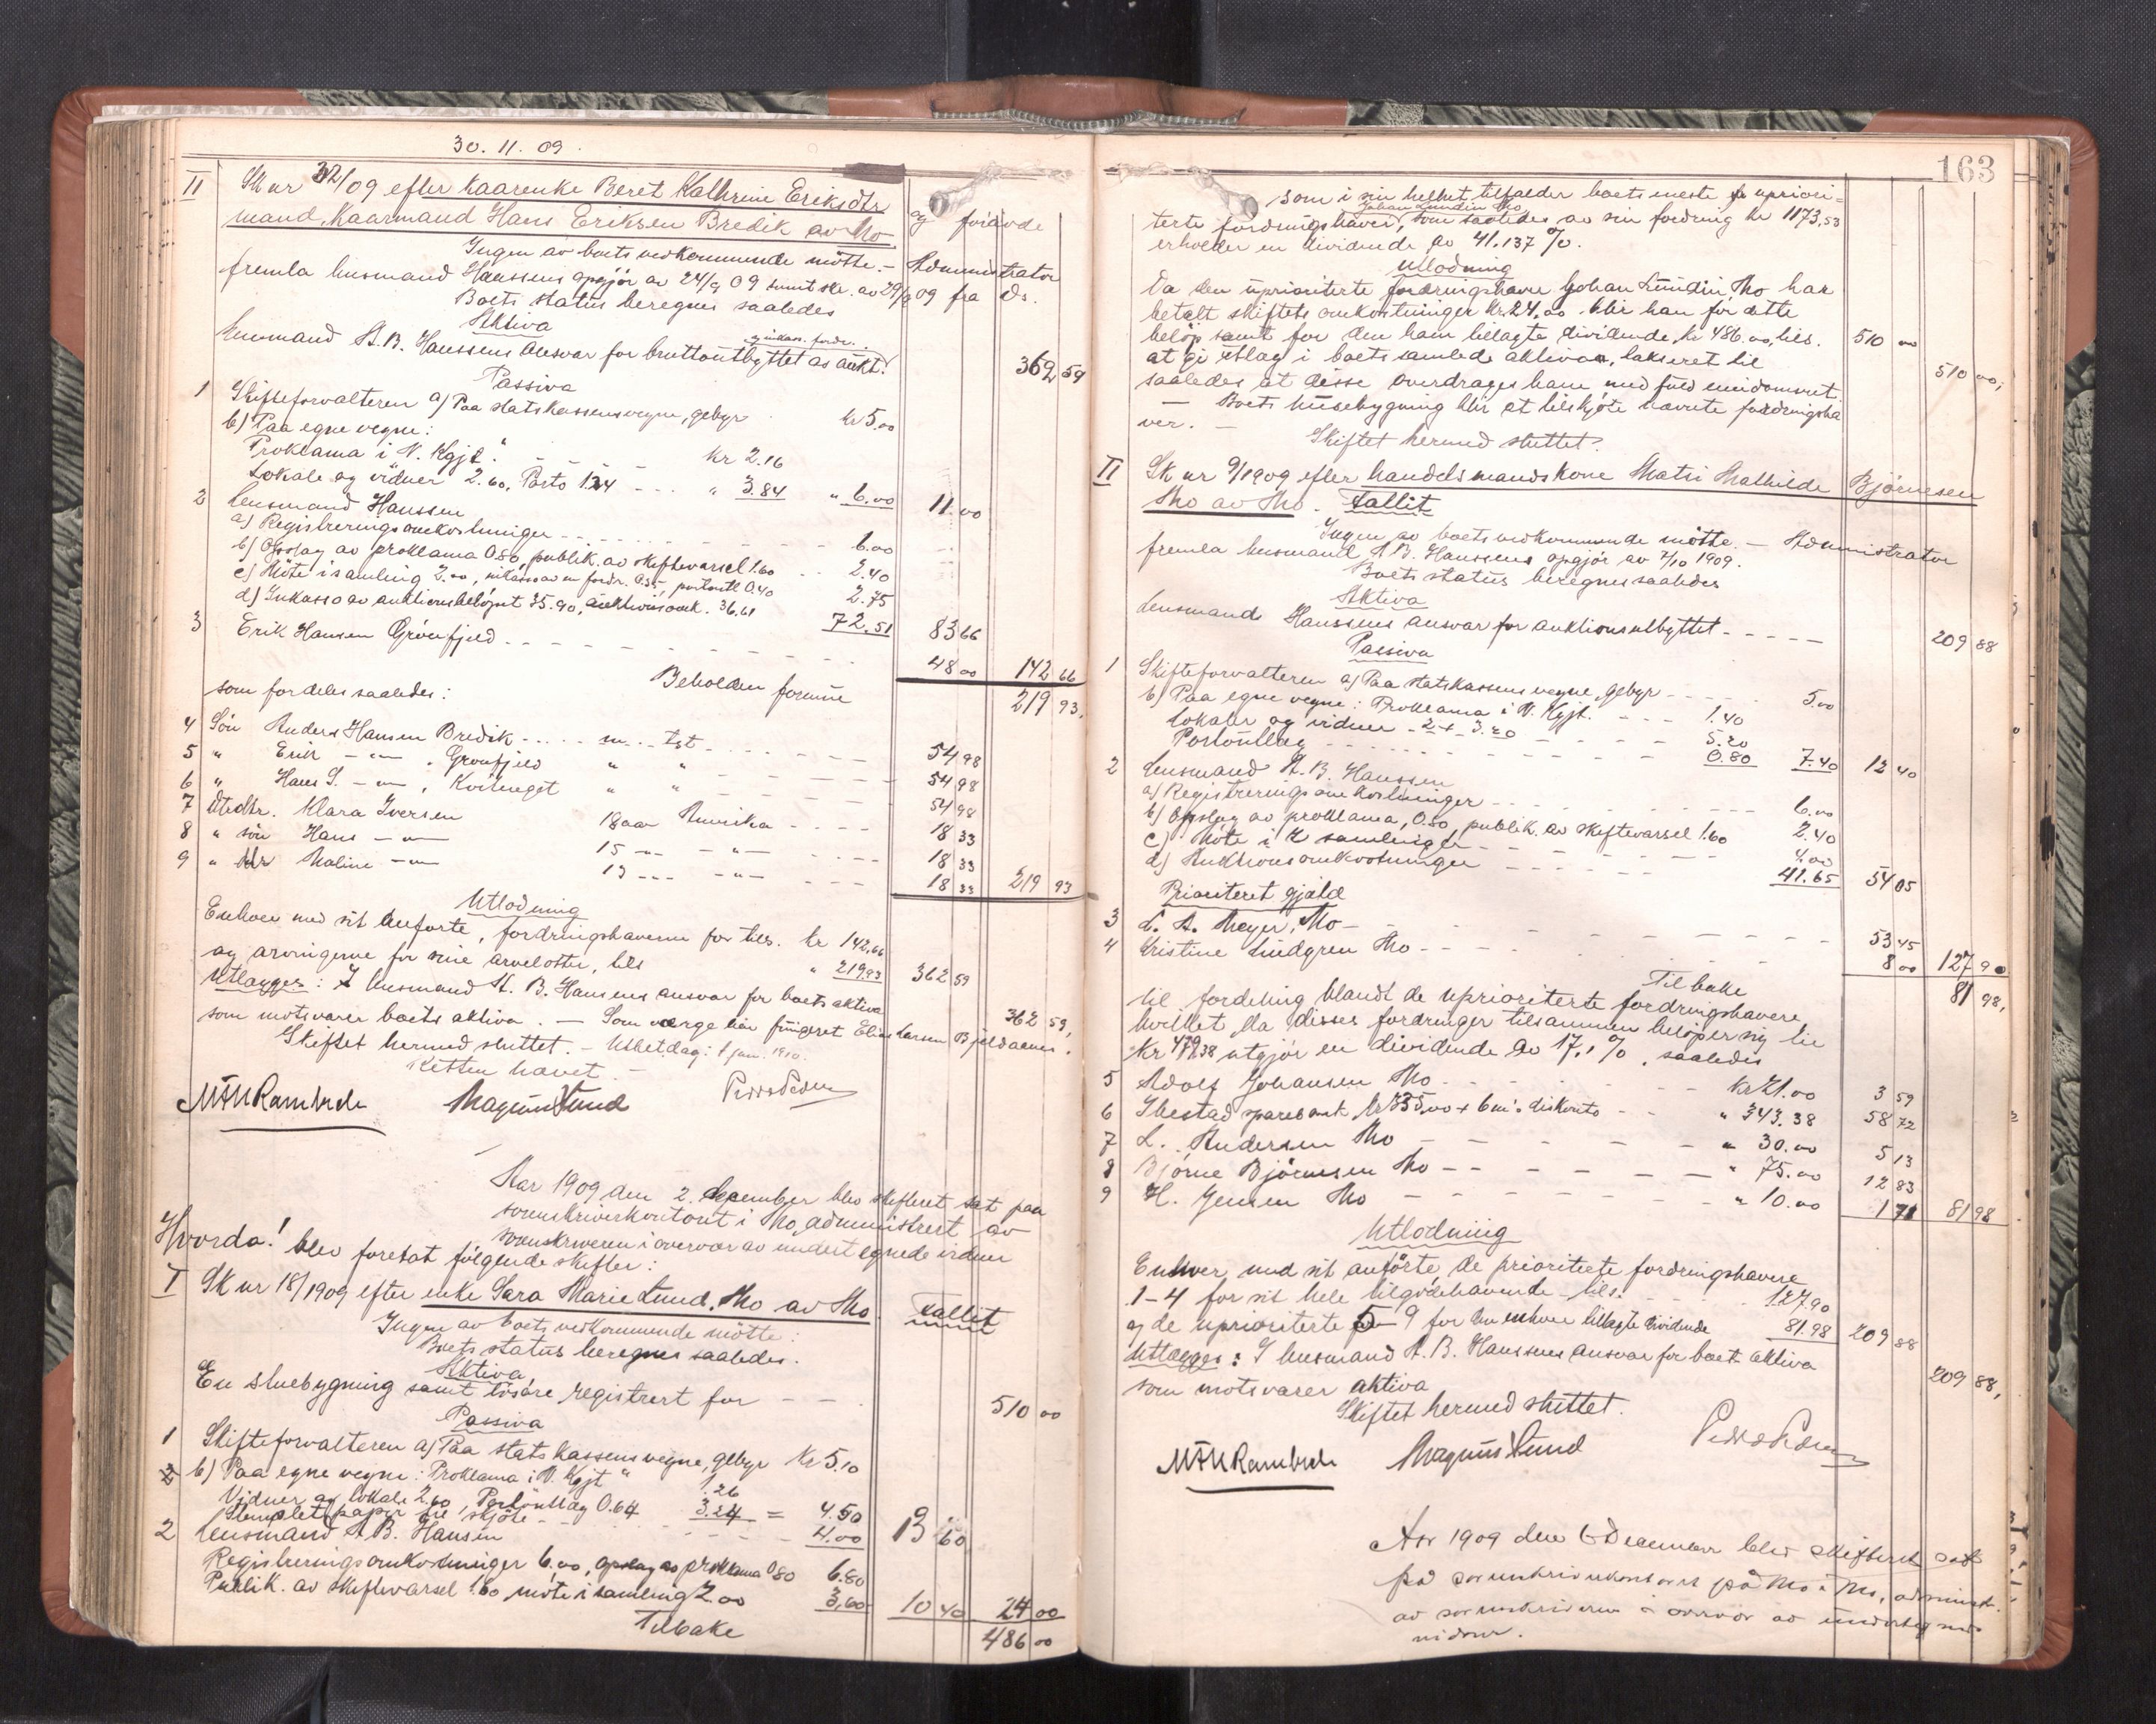 30.11.09.
II Sk nr 32/09 efter kaarenke Beret Kathrine Eriksdtr og forävde
mand, Kaarmand Hans Eriksen Bredik av Mo
Ingen av boets vedkommende mötte. - Administrator
fremla lensmand Hanssens opgjör av 24/9 09 samt skr. av 29/9 09 fra ds.
Boets status beregnes saaledes
Aktiva
Lensmand A. B. Hanssens ansvar for bruttoutbyttet as aukt. og inkass. fordr. 362 59
Passiva
1 Skifteforvalteren a) Paa statskassens vegne, gebyr kr 5.00
b) Paa egne vegne:
Proklama i N. Kgjt. kr 2.16
Lokale og vidner 2.60, Porto 1.24 " 3.84 " 6.00 11.00
2 Lensmand Hanssen
a) Registreringsomkostninger 6.00
b) Opslag av proklama 0.80, publik. av skiftevarsel 1.60 2.40
c) Möte i samling 2.00, inkasso av en fordr. 0.35, portoutl 0.40 2.75
d) Inkasso av auktionsbelöpet 35.90, auktionsomk. 36.61 72.51 83 66
3 Erik Hansen Grönfjeld 48 00 142 66
Beholden formue 219 93,
som fordeles saaledes:
4 Sön Anders Hansen Bredik m. tgt 54 98
5 " Erik -"- , Grönfjeld " " 54 98
6 " Hans S. -"- , Kvitenget " " 54 98
7 Dtrdtr. Klara Iversen 18 aar Amerika 18 33
8 " sön Hans -"- 15 -"- -"- 18 33
9 " dtr Maline -"- 13 -"- -"- 18 33 219 93
Utlodning
Enhver med sit anförte, fordringshaverne for tils. kr 142,66
og arvingerne for sine arvelotter, tils " 219,93 362 59
Utlægges: I lensmand A. B. Hansens ansvar for boets aktiva
som motsvarer boets aktiva. - Som værge har fungeret Elias Larsen Bjeldaanes. 362 59,
Skiftet hermed sluttet. - Utbet.dag: 1 jan. 1910.
Retten hævet. -
Magnus Lund
Aar 1909 den 2. december blev skifteret sat paa
sorenskriverkontoret i Mo, administrert av
sorenskriveren i overvær av undertegnede vidner
Hvorda! blev foretat fölgende skifter:
I Sk nr 18/1909 efter enke Sara Marie Lund, Mo av Mo. Fallit
Ingen av boets vedkommende mötte:
Boets status beregnes saaledes.
Aktiva
En stuebygning samt lösöre registrert for 510 00
Passiva
1 Skifteforvalteren a) Paa statskassens vegne, gebyr kr 5.10
b) Paa egne vegne: Proklama i N. Kgjt " 1.26
Vidner og lokale 2.60, Portoutlæg 0.64 3.24 = 4.50
Stemplet papir til skjöte 4.00 13 60
2 Lensmand A. B. Hansen
Registreringsomkostninger 6.00, opslag av proklama 0.80 6.80
Publik. av skiftevarsel 1.60 möte i samling 2.00 3,60 10 40 24 00
Tilbake 486 00
163
som i sin helhet tilfalder boets eneste upriori-
terte fordringshaver, Johan Lundin Mo, som saaledes av sin fordring kr 1173,53
erholder en dividende av 41.137 %.
Utlodning
Da den uprioriterte fordringshaver Johan Lundin, Mo har
betalt skiftets omkostninger kr 24,00 blir han for dette
belöp samt for den ham tillagte dividende, kr 486.00, tils. 510 00
at gi utlæg i boets samlede aktiva, takseret til 510 00,
saaledes at disse overdrages ham med fuld eiendomsret.
- Boets husebygning blir at tilskjöte nævnte fordringsha
ver. -
Skiftet hermed sluttet.
II Sk nr 9/1909 efter handelsmandskone Matri Mathilde Björnesen
Mo av Mo. Fallit
Ingen av boets vedkommende mötte. - Administrator
fremla lensmand A. B. Hanssens opgjör av 7/10 1909.
Boets status beregnes saaledes
Aktiva
Lensmand Hanssens ansvar for auktionsutbyttet 209 88
Passiva
1 Skifteforvalteren a) Paa statskassens vegne, gebyr 5.00
b) Paa egne vegne: Proklama i N. Kgjt. 1.40
Lokaler og vidner 2 + 3.20 5.20
Portoutlæg 0.80 7.40 12 40
2 Lensmand A. B. Hanssen
a) Registreringsomkostninger 6.00
b) Opslag av proklama, 0.80 publik. av skiftevarsel 1.60 2.40
c) Möte i 2 samlinger 4.00
d) Auktionsomkostninger 41.65 54 05
Prioriteret gjæld
3 L. A. Meyer, Mo 53 45
4 Kristine Lindgren Mo 8 00 127 90
Tilbake 81 98,
til fordeling blandt de uprioriterte fordringshavere,
hvilket, da disses fordringer tilsammen belöper sig til
kr 479.38 utgjör en dividende av 17,1 %, saaledes
5 Adolf Johansen Mo kr 21.00 3 59
6 Ibestad sparebank kr 335,00 + 6 m's diskonto " 343.38 58 72
7 L. Andersen Mo " 30.00 5 13
8 Björne Björnesen Mo " 75.00 12 83
9 H. Jensen Mo " 10.00 1 71 81 98
Utlodning
Enhver med sit anförte, de prioriterte fordringshavere
1-4 for sit hele tilgodehavende tils. 127,90
og de uprioriterte 5-9 for den enhver tillagte dividende 81.98 209 88
Utlægges: I lensmand A. B. Hanssens ansvar for boets aktiva
som motsvarer aktiva 209 88,
Skiftet hermed sluttet.
Magnus Lund
Aar 1909 den 6 December blev skifteret sat
på sorenskriverkontoret på Mo i Mo, administr.
av sorenskriveren i overvær av undertegnede
vidner.